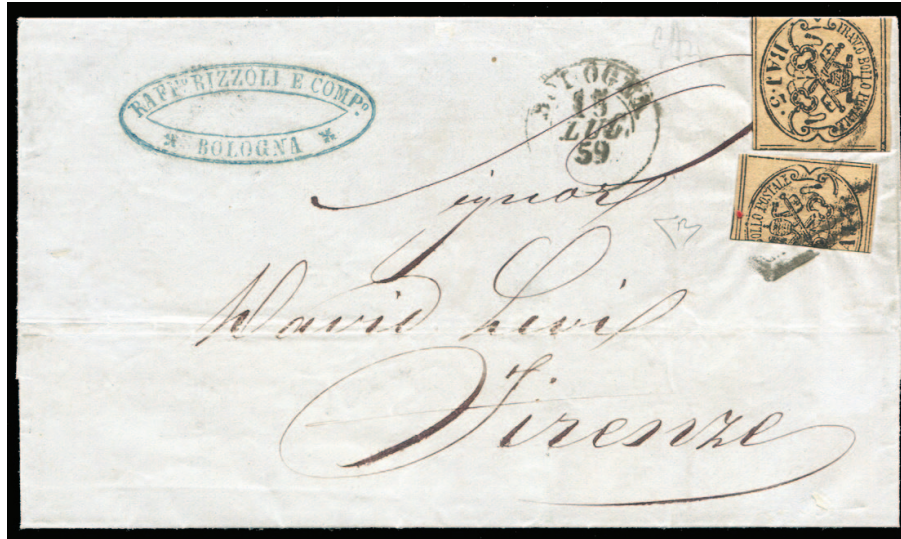 RAFF.º RIZZOLI E COMP.º
BOLOGNA
BOLOGNA
15
LUG.
59
FRANCO BOLLO POSTALE
BAJ. 5.
BOLLO POSTALE
Signor
David Levi
Firenze